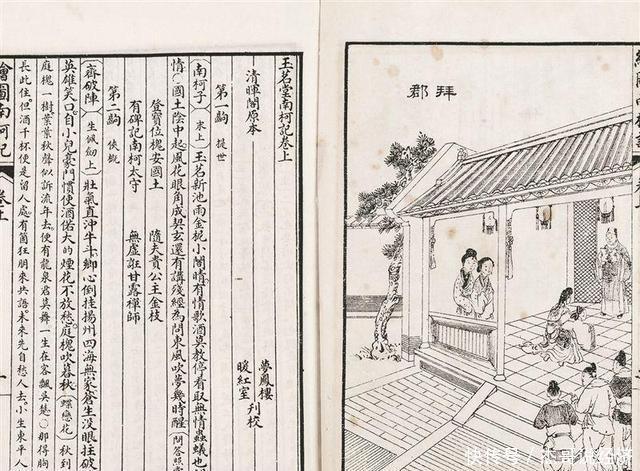 拜郡
玉茗堂南柯記卷上
清暉閣原本
夢鳳樓
暖紅室
刊校
第一齣 提世
(南柯子)(末上)玉茗新池雨金柅小閣晴有情歌酒莫教停看取無情蟲蟻也
情○國土陰中起風花眼角成契玄還有講殘經為問東風吹夢幾時醒(問答照常
登寶位槐安國土 隨夫貴公主金枝
有碑記南柯太守 無虛誑甘露禪師
第二齣 俠概
(齊破陣)(生佩劍上)壯氣直沖牛斗鄉心倒挂揚州四海無家蒼生沒眼拄破
英雄笑口自小兒豪門慣使酒偌大的煙花不放愁庭槐吹暮秋(蝶戀花)秋到
庭槐一樹葉葉秋聲似訴流年去便有龍泉君莫舞一生在客飄吳楚○那得胸
長此住但酒千杯便是留人處有箇狂朋來共語未來先自愁人去小生東平人
繪圖南柯記 卷上
快传号